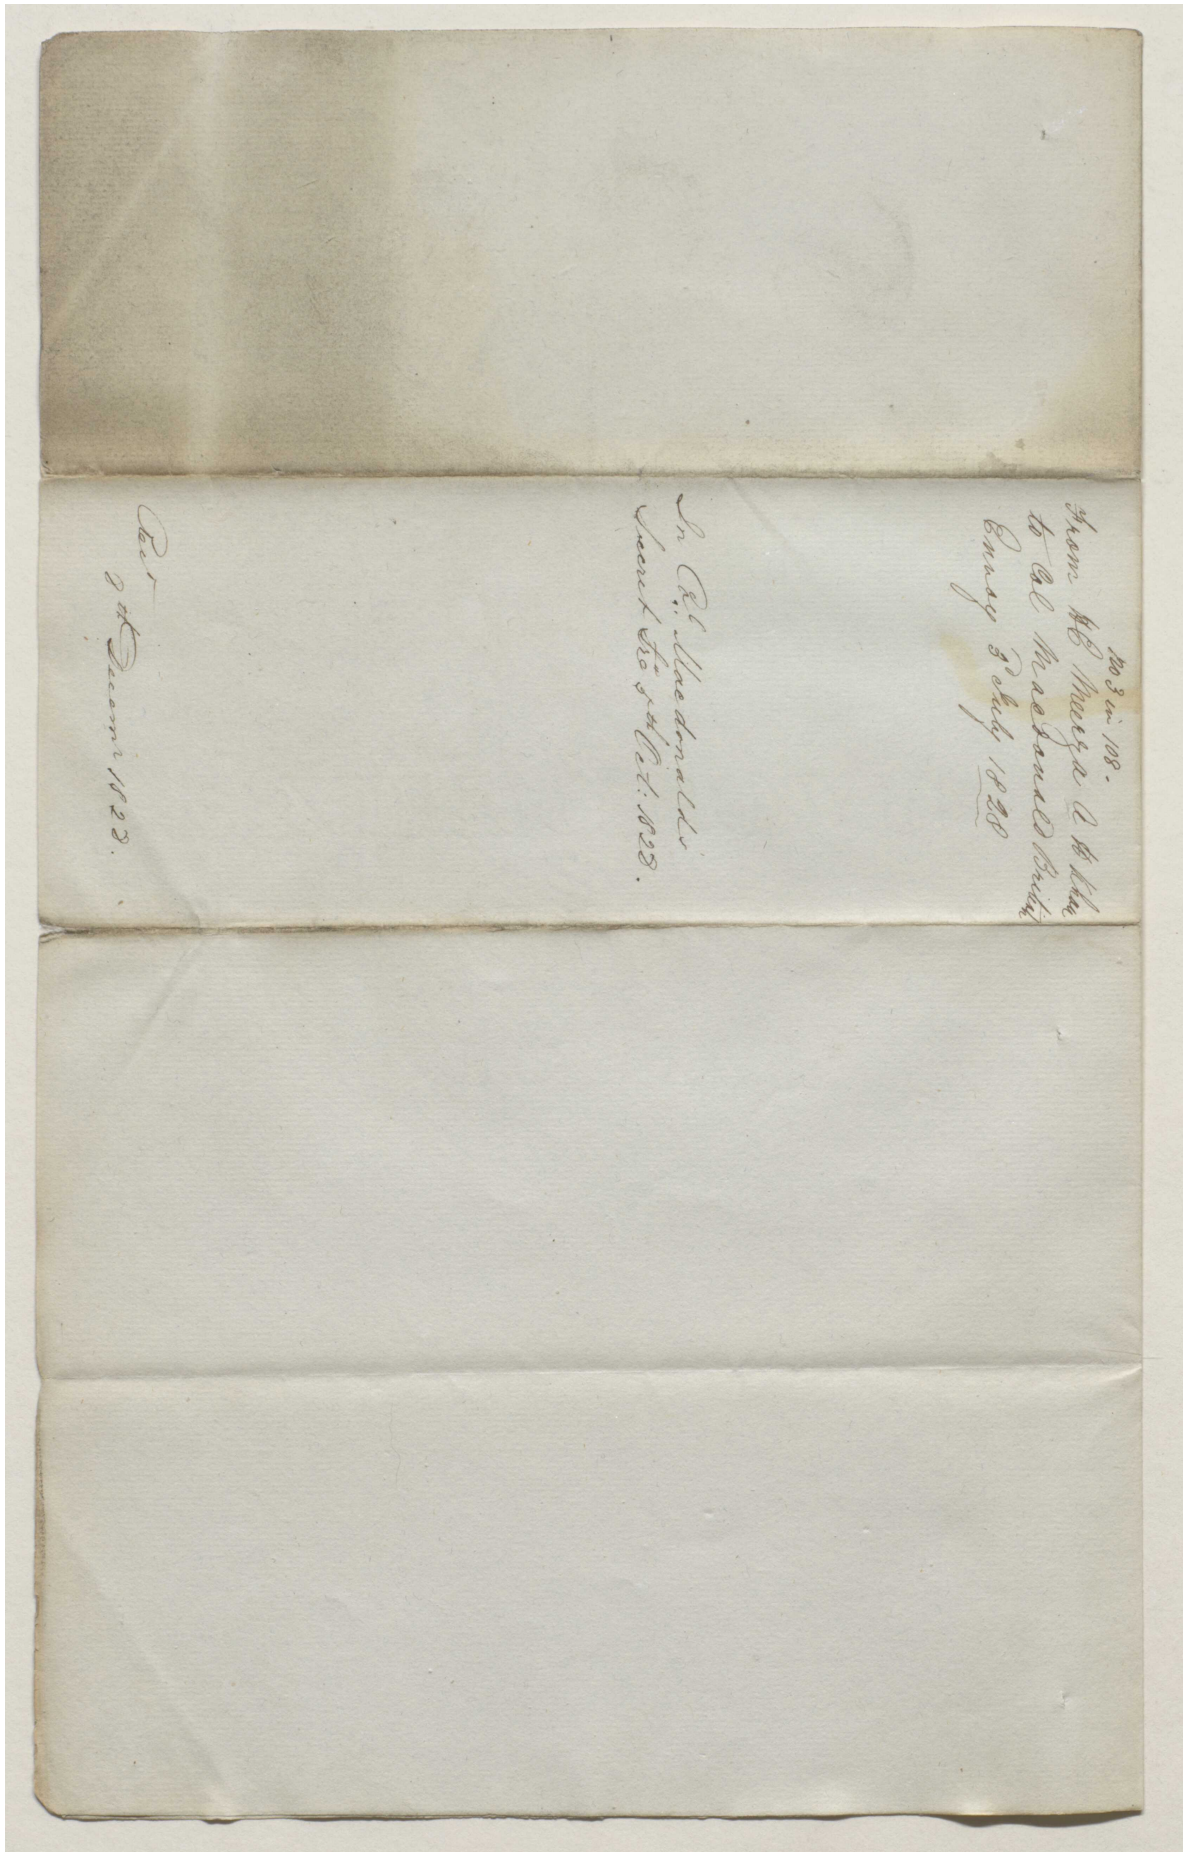 No 3 in 108.
From HE Meerza A H Khan
to Col MacDonald British
Envoy 3d July 1828
In Col. Macdonald's
Secret 5th Oct: 1828.
Recd
8th Decemr 1828.